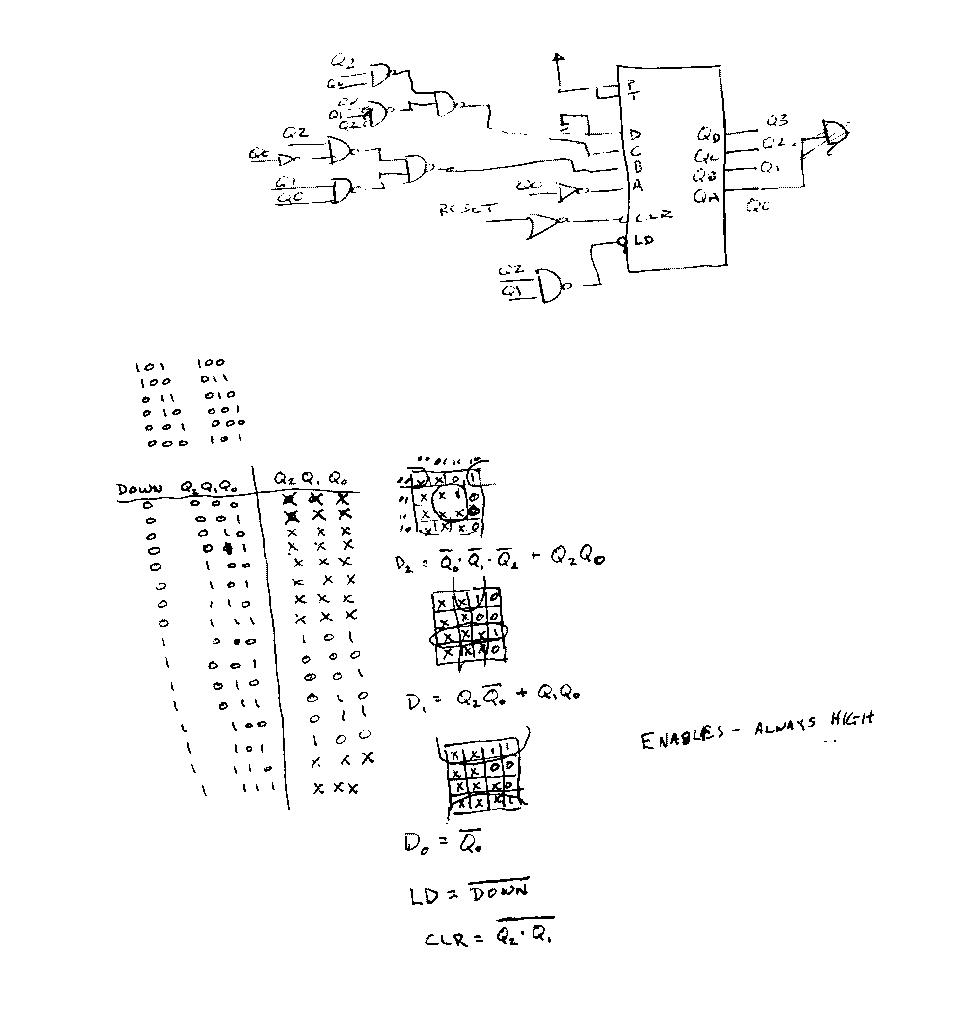 Q2
Q0
Q1
Q2
Q2
Q0
Q1
Q0
P
T
D
C
B
A
QD Q3
QC Q2
QB Q1
QA Q0
RESET
CLR
LD
Q2
Q1
101 100
100 011
011 010
010 001
001 000
000 101
DOWN Q2 Q1 Q0 Q2 Q1 Q0
0 0 0 0 X X X
0 0 0 1 X X X
0 0 1 0 X X X
0 0 1 1 X X X
0 1 0 0 X X X
0 1 0 1 X X X
0 1 1 0 X X X
0 1 1 1 X X X
1 0 0 0 1 0 1
1 0 0 1 0 0 0
1 0 1 0 0 0 1
1 0 1 1 0 1 0
1 1 0 0 0 1 1
1 1 0 1 1 0 0
1 1 1 0 X X X
1 1 1 1 X X X
00 01 11 10
00 X X 0 1
01 X X 1 0
11 X X X 0
10 X X X 0
D2 = Q̅0·Q̅1·Q̅2 + Q2Q0
X X 1 0
X X 0 0
X X X 1
X X X 0
D1 = Q2Q̅0 + Q1Q0
X X 1 1
X X 0 0
X X X 0
X X X 1
D0 = Q̅0
LD = D̅O̅W̅N̅
CLR = Q̅2̅·̅Q̅1̅
ENABLES - ALWAYS HIGH